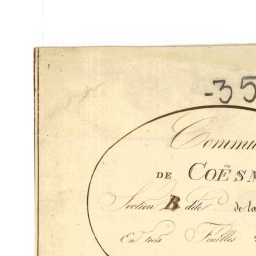 -35
Commu
DE COËSM
Section B dite de la
En trois Feuilles